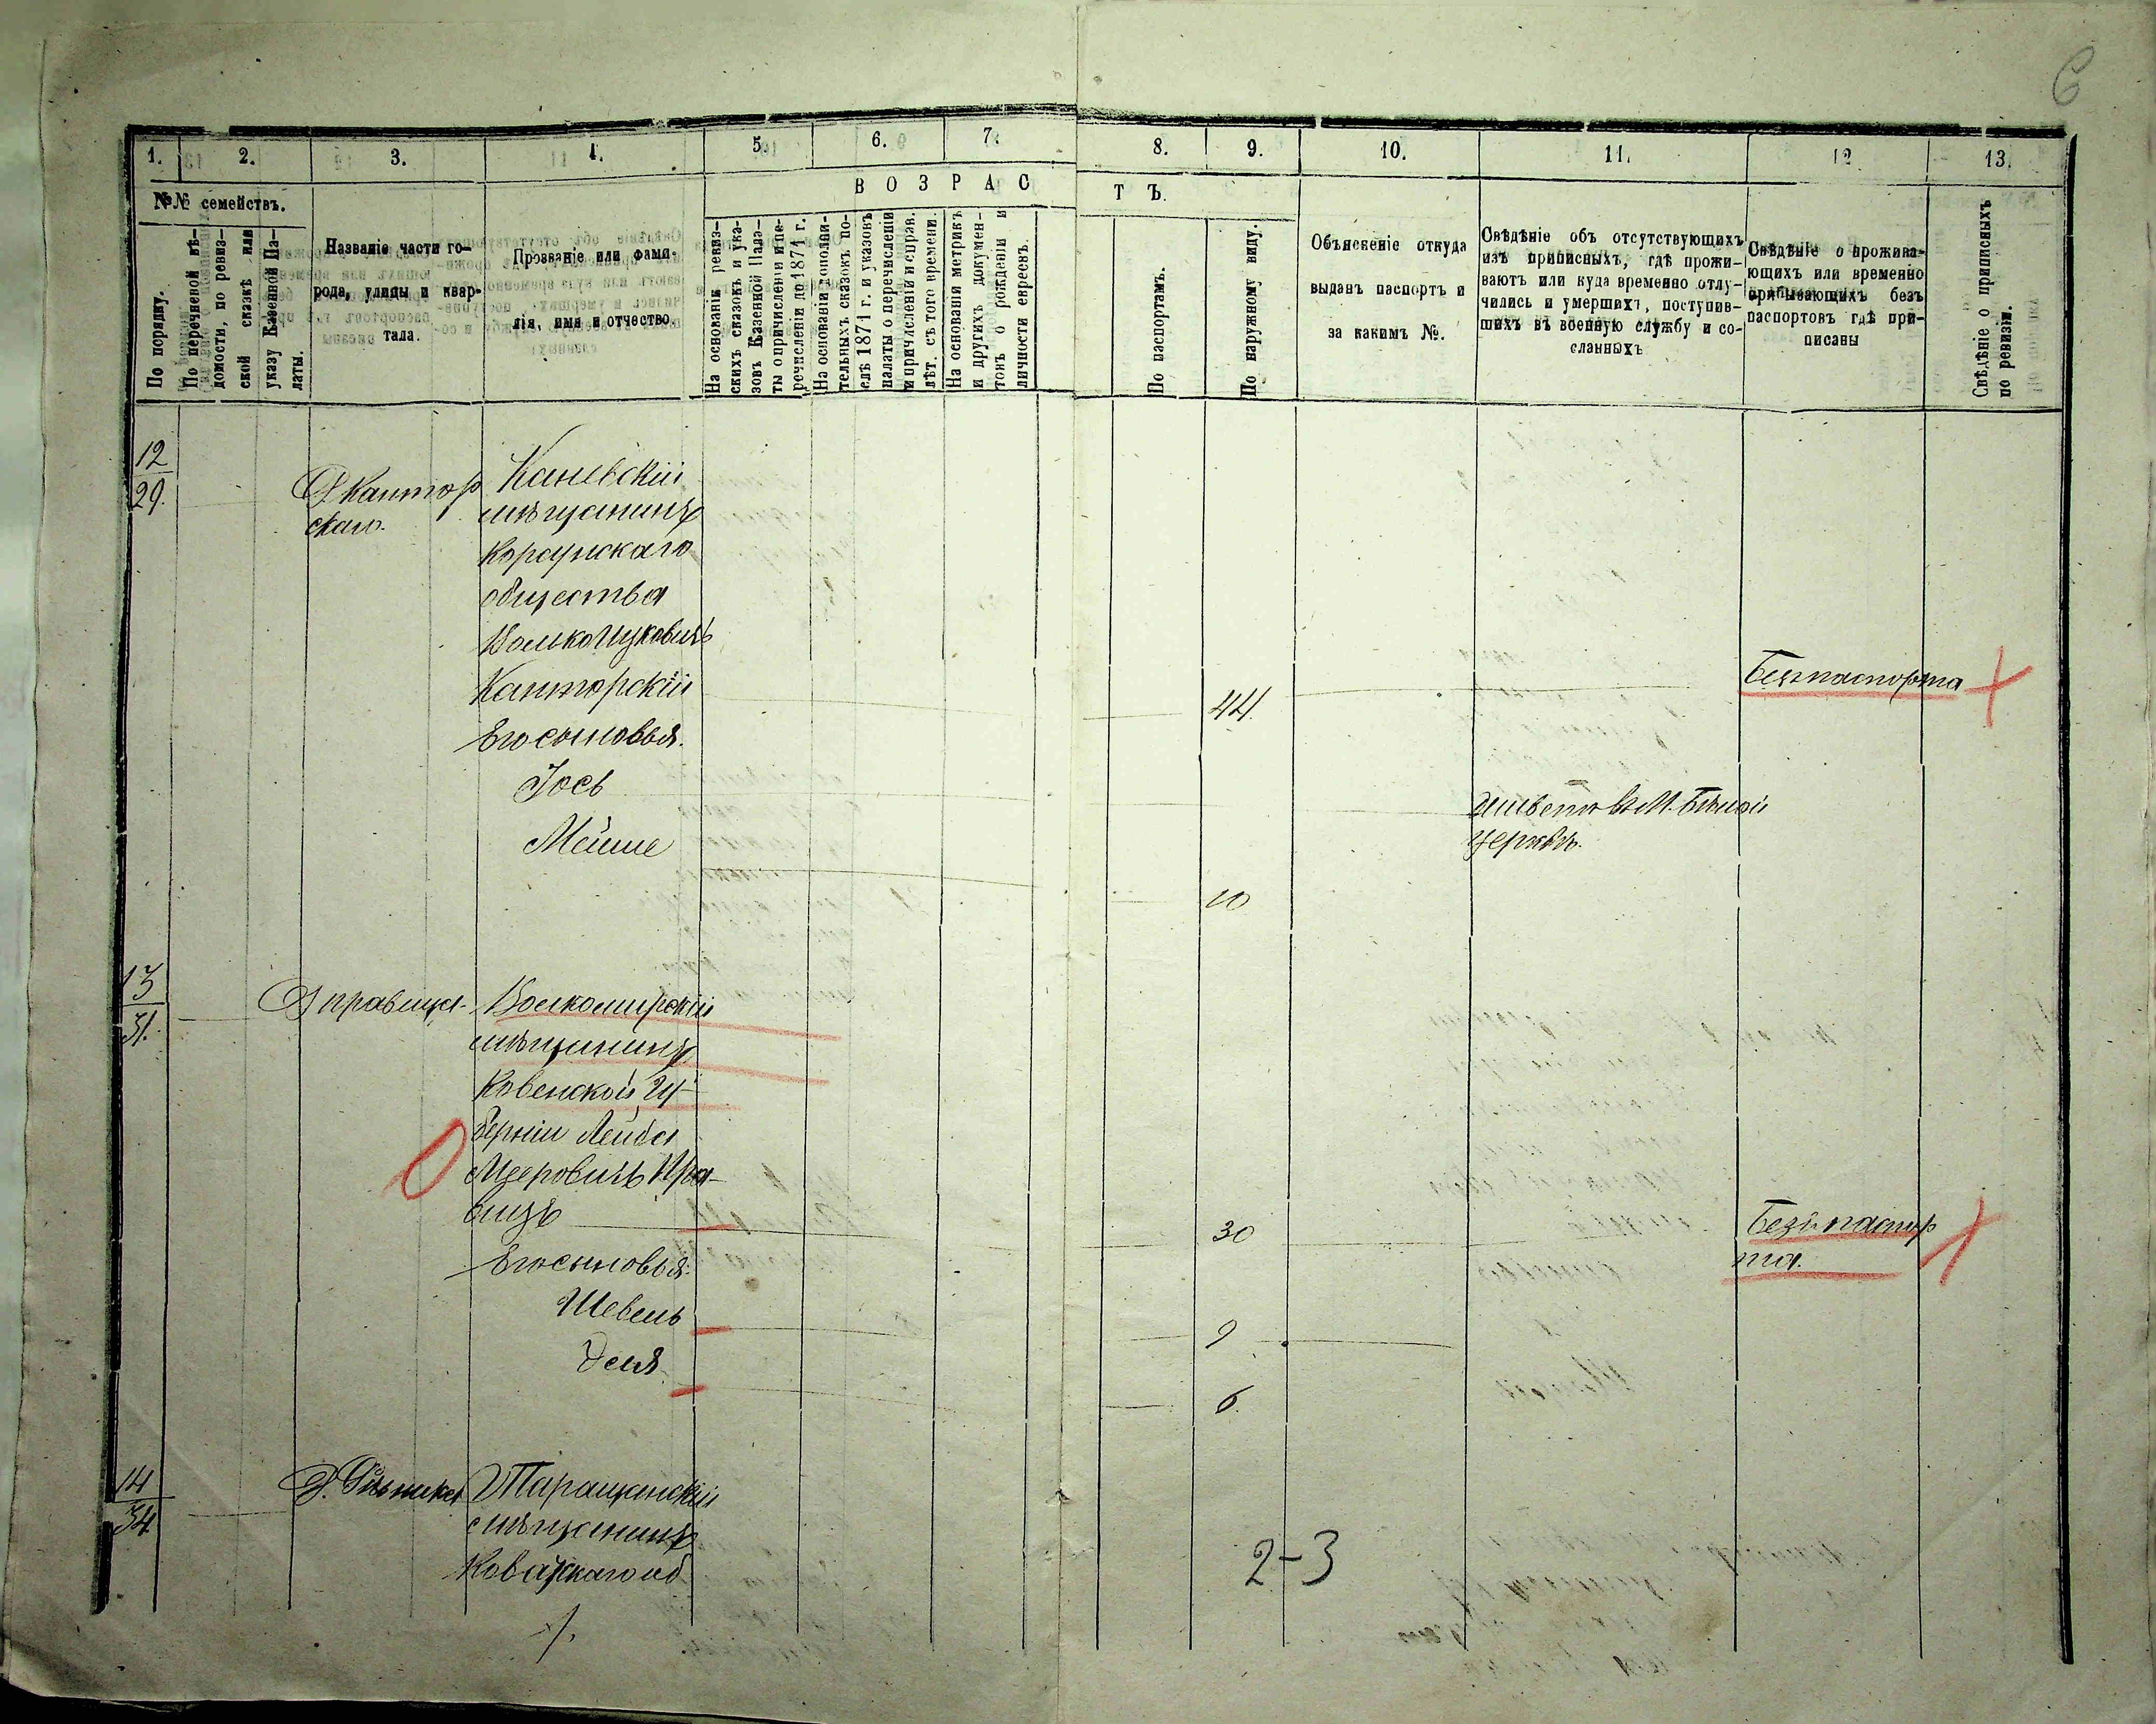 6
1. 2. 3. 4. 5. 6. 7. 8. 9. 10. 11. 12 13.
ВОЗРАСТЪ.
№№ семействъ.
По порядку.
По перечневой вѣ-
домости, по ревиз-
ской сказкѣ или
указу Казенной Па-
латы.
Названіе части го-
рода, улицы и квар-
тала.
Прозваніе или фами-
лія, имя и отчество
На основаніи ревиз-
скихъ сказокъ и ука-
зовъ Казенной Пала-
ты о причисленіи и пе-
речисленіи до 1871 г.
На основаніи дополни-
тельныхъ сказокъ по-
слѣ 1871 г. и указовъ
палаты о перечисленіи
и причисленіи и справ.
лѣт. съ того времени.
На основаніи метрикъ
и другихъ докумен-
товъ о рожденіи и
личности евреевъ.
По паспортамъ.
По наружному виду.
Объясненіе откуда
выданъ паспортъ и
за какимъ №.
Свѣдѣніе объ отсутствующихъ
изъ приписныхъ, гдѣ прожи-
ваютъ или куда временно отлу-
чились и умершихъ, поступив-
шихъ въ военную службу и со-
сланныхъ
Свѣдѣніе о прожива-
ющихъ или временно
прибывающихъ безъ
паспортовъ гдѣ при-
писаны
Свѣдѣніе о приписныхъ
по ревизіи.
12
29.
Д Кантор
скаго.
Каневскій
мѣщанинъ
Корсунскаго
общества
Волько Ицковичъ
Канторскій
44.
Безъ паспорта
Его сыновья.
Іось
живетъ въ М. Бѣлой
Церкви.
Мойше
10
13
31.
Д Правица
Волкомирскій
мѣщанинъ
Ковенской Гу-
берніи Лейба
Мееровичъ Пра-
вицъ
30
Безъ паспор
та.
Его сыновья:
Шевель
9
Зеля
6.
14
34.
Таращанскій
мѣщанинъ
2-3